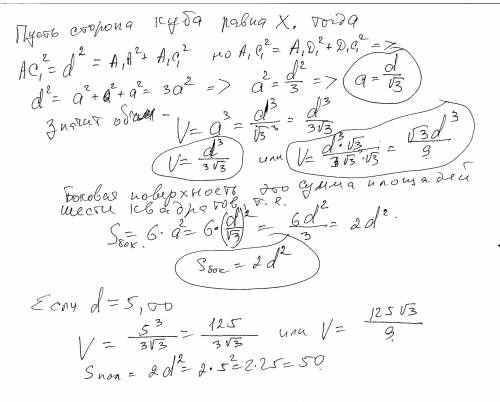 Пусть сторона куба равна X. тогда
AC₁² = d² = A₁A² + A₁C₁² но A₁C₁² = A₁D₁² + D₁C₁² =>
d² = a² + a² + a² = 3a² => a² = d²/3 => a = d/√3
значит объем –
V = a³ = d³/√3³ = d³/3√3
V = d³/3√3 или V = d³·√3/3√3·√3 = √3d³/9
Боковая поверхность это сумма площадей
шести квадратов т.е.
Sбок. = 6·a² = 6·(d/√3)² = 6d²/3 = 2d².
Sбок = 2d²
Если d = 5, то
V = 5³/3√3 = 125/3√3 или V = 125√3/9
Sпол = 2d² = 2·5² = 2·25 = 50